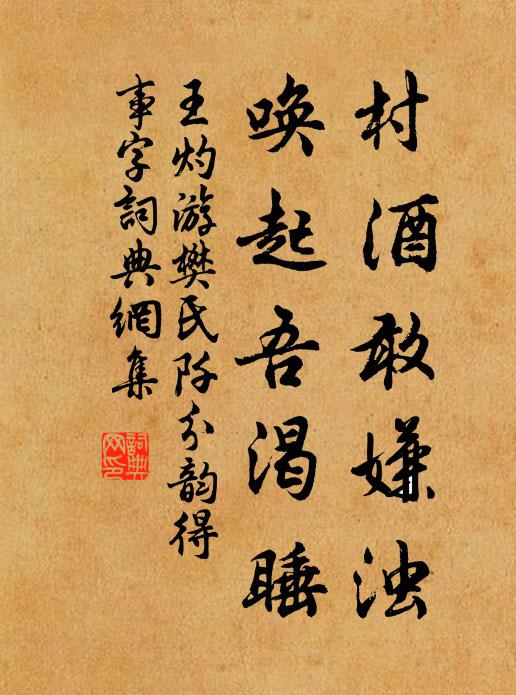 村酒敢嫌浊
唤起吾渴睡
王灼游樊氏阡分韵得
事字詞典網集
詞典网印